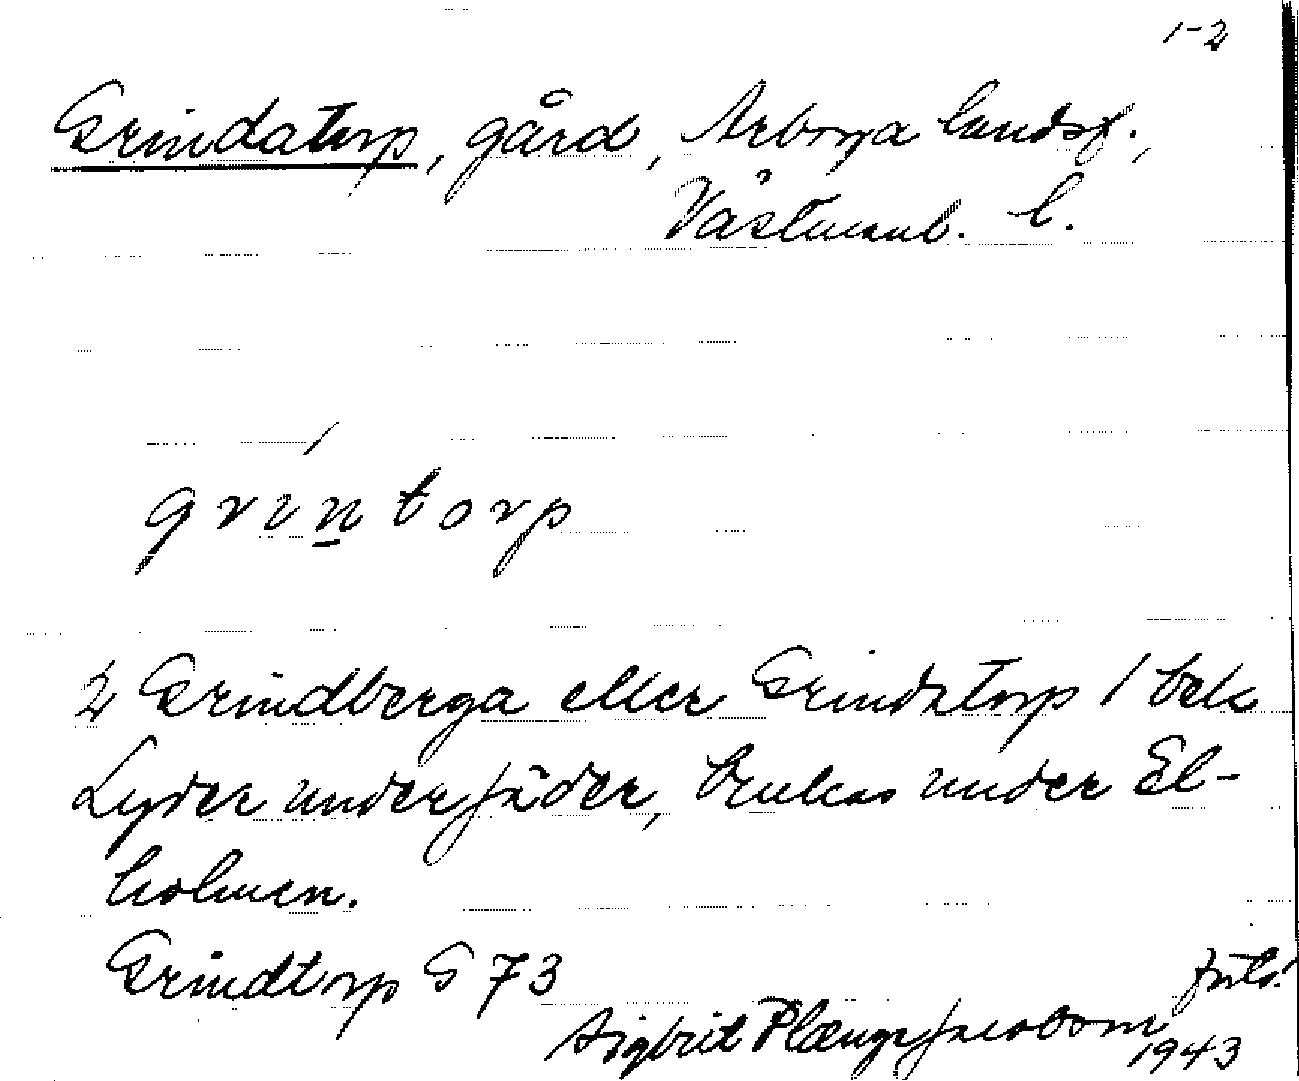 1-2
Grindatorp, gård, Arboga landsf.,
Västmanl. l.
grintorp
2 Grindberga eller Grindatorp 1 bek
Lyder under Jäder, brukas under El-
holmen.
Grindtorp G 73
forts!
Sigbrit Plænge Jacobson
1943